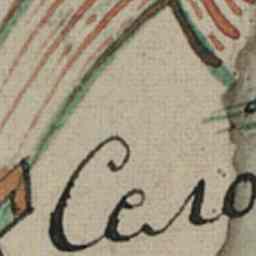 Село